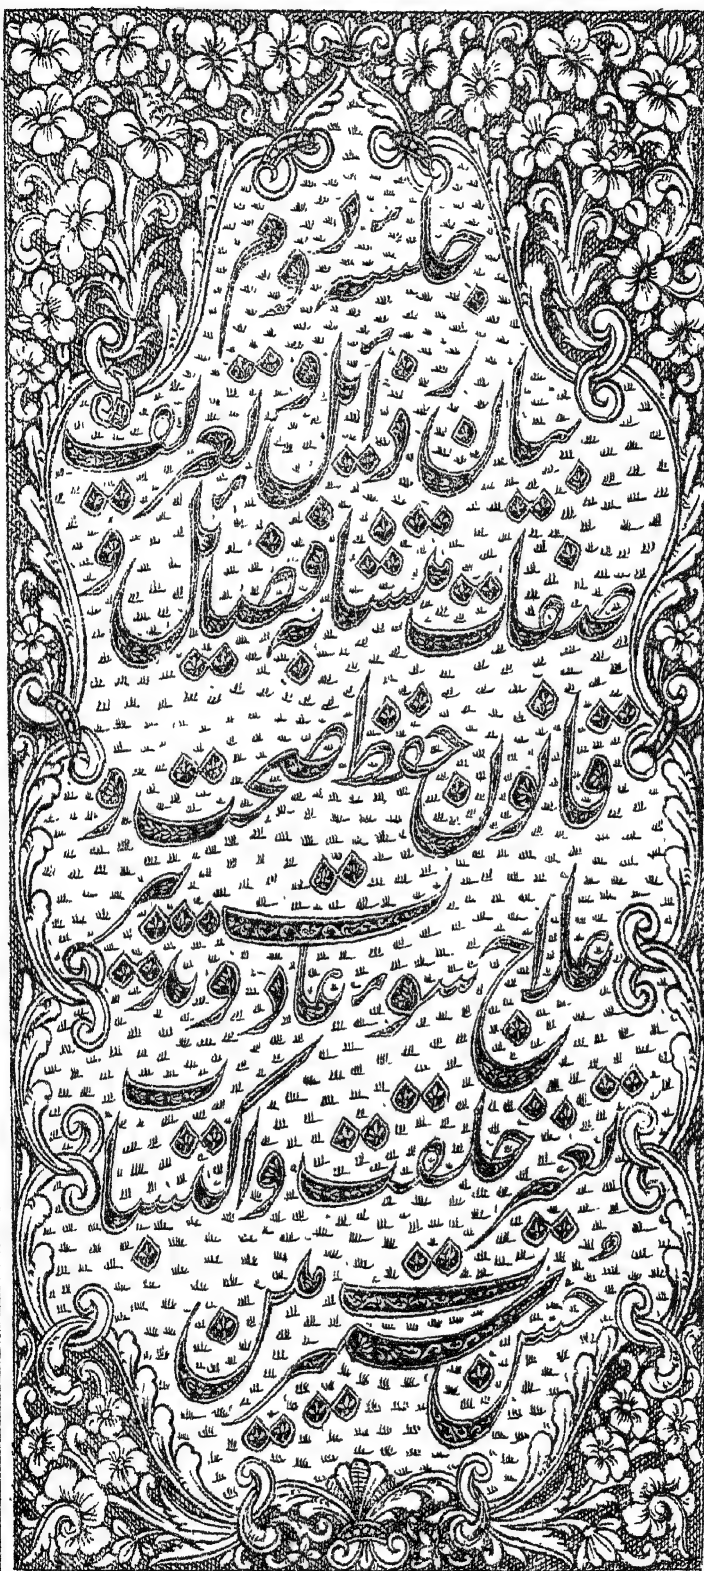 جلسه دوم
بیان رذایل و تعریف
صفات متشابه فضایل و
قانون حفظ صحت و
علاج سوء عادت و تدبیر
تغییر خلقت و اکتساب
حُسن سیرت مین